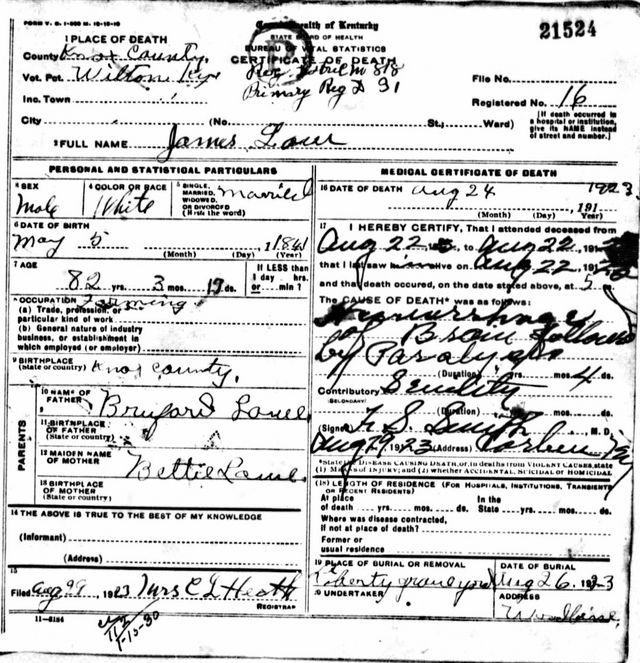 FORM V. S. 1-500 M 10-10-10
Commonwealth of Kentucky
STATE BOARD OF HEALTH
BUREAU OF VITAL STATISTICS
CERTIFICATE OF DEATH
21524
1 PLACE OF DEATH
County Knox County.
Vot. Pct. Wilton Ky
Inc. Town
Primary Reg D 31
File No.
Registered No. 16
City (No. St., Ward)
[If death occurred in a hospital or institution, give its NAME instead of street and number.]
2 FULL NAME James
PERSONAL AND STATISTICAL PARTICULARS
3 SEX
Male
4 COLOR OR RACE
White
5 SINGLE, MARRIED, WIDOWED, OR DIVORCED (Write the word)
Married
6 DATE OF BIRTH
May 5, 1841
(Month) (Day) (Year)
7 AGE
82 yrs. 3 mos. 19 ds.
If LESS than 1 day hrs. or min.?
8 OCCUPATION Farming
(a) Trade, profession, or particular kind of work
(b) General nature of industry business, or establishment in which employed (or employer)
9 BIRTHPLACE
(State or country) Knox County,
PARENTS
10 NAME OF FATHER
11 BIRTHPLACE OF FATHER
(State or country)
12 MAIDEN NAME OF MOTHER Bettie
13 BIRTHPLACE OF MOTHER
(State or country)
14 THE ABOVE IS TRUE TO THE BEST OF MY KNOWLEDGE
(Informant)
(Address)
15
Filed Aug 29, 1923 Mrs C L Heath
REGISTRAR
11-6184
1-15-30
MEDICAL CERTIFICATE OF DEATH
16 DATE OF DEATH Aug 24 1923
(Month) (Day) (Year)
17 I HEREBY CERTIFY, That I attended deceased from
Aug 22, to Aug 22, 191
that I last saw alive on Aug 22, 191
and that death occured, on the date stated above, at 5 m.
The CAUSE OF DEATH* was as follows:
Hemorrhage
of Brain followed
by Paralysis
(Duration) yrs. mos. 4 ds.
Contributory Senility
(SECONDARY)
(Duration) yrs. mos. ds.
Signed M. D.
Aug 29 1923 (Address) Corbin Ky
*State the DISEASE CAUSING DEATH, or, in deaths from VIOLENT CAUSES, state (1) MEANS OF INJURY; and (2) whether ACCIDENTAL, SUICIDAL or HOMICIDAL
18 LENGTH OF RESIDENCE (FOR HOSPITALS, INSTITUTIONS, TRANSIENTS OR RECENT RESIDENTS)
At place of death yrs. mos. ds. In the State yrs. mos. ds.
Where was disease contracted, if not at place of death?
Former or usual residence
19 PLACE OF BURIAL OR REMOVAL
Liberty graveyard
DATE OF BURIAL
Aug 26, 1923
20 UNDERTAKER
ADDRESS